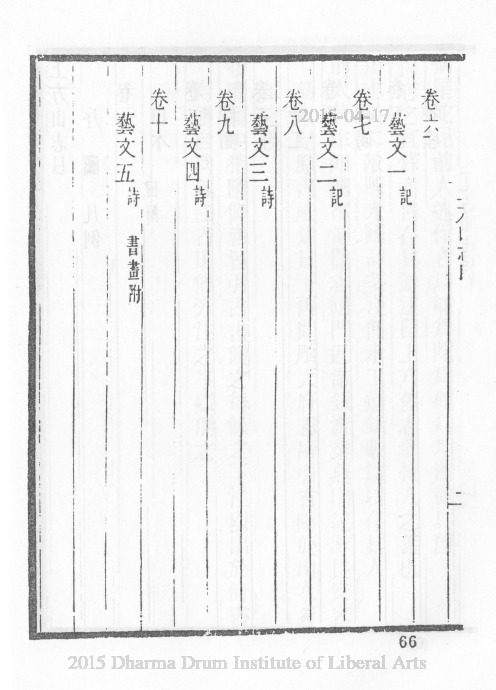 卷六
藝文一 記
卷七
藝文二 記
卷八
藝文三 詩
卷九
藝文四 詩
卷十
藝文五 詩 書畫附
二
66
2015-04-17
2015 Dharma Drum Institute of Liberal Arts